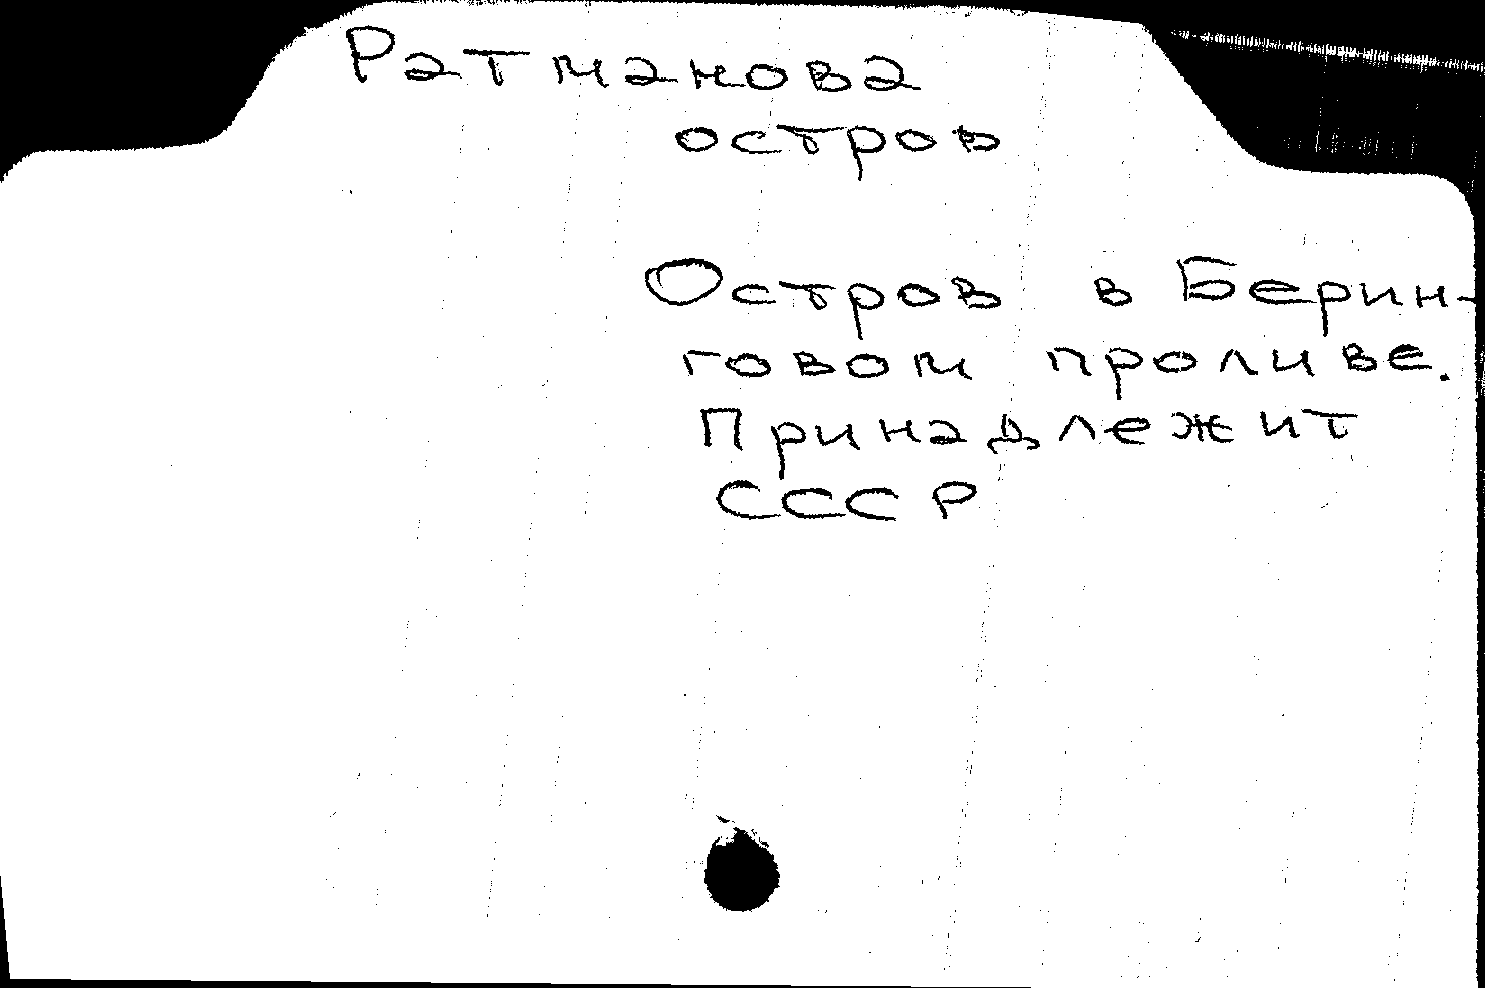 Ратманова
остров
Остров в Берин-
говом проливе.
Принадлежит
СССР